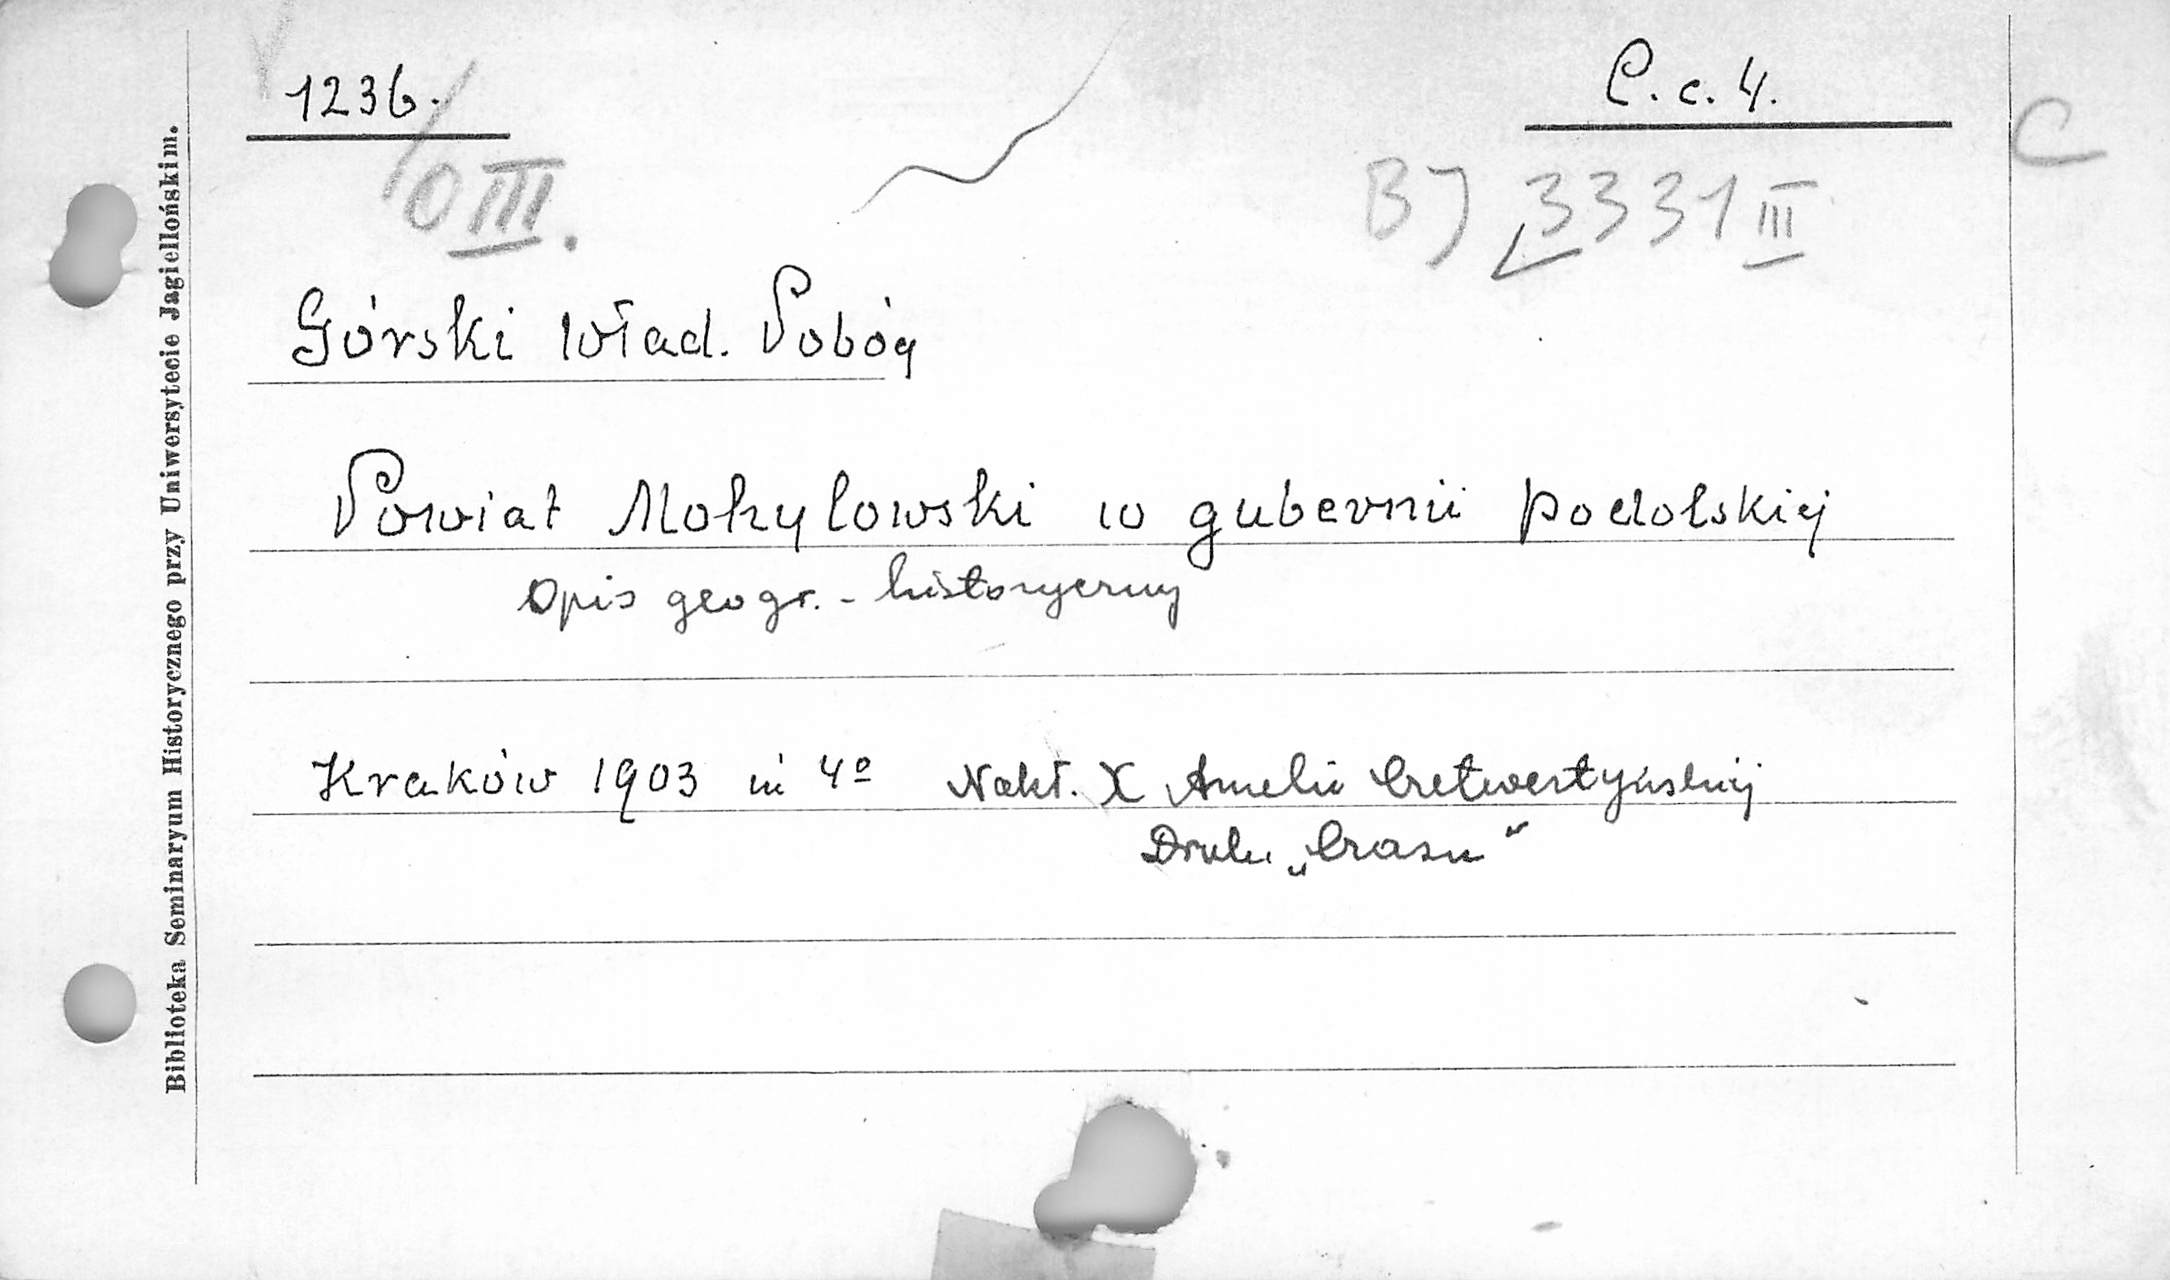 1236. C. c. 4.
C
O III. BJ 3331 III
Górski Wład. Pobóg
Powiat Mohylowski w gubernii podolskiej
Opis geogr. - historyczny
Kraków 1903 in 4º Nakł. X Amelii Czetwertyńskiej
Druk. „Czasu“
Biblioteka Seminaryum Historycznego przy Uniwersytecie Jagiellońskim.